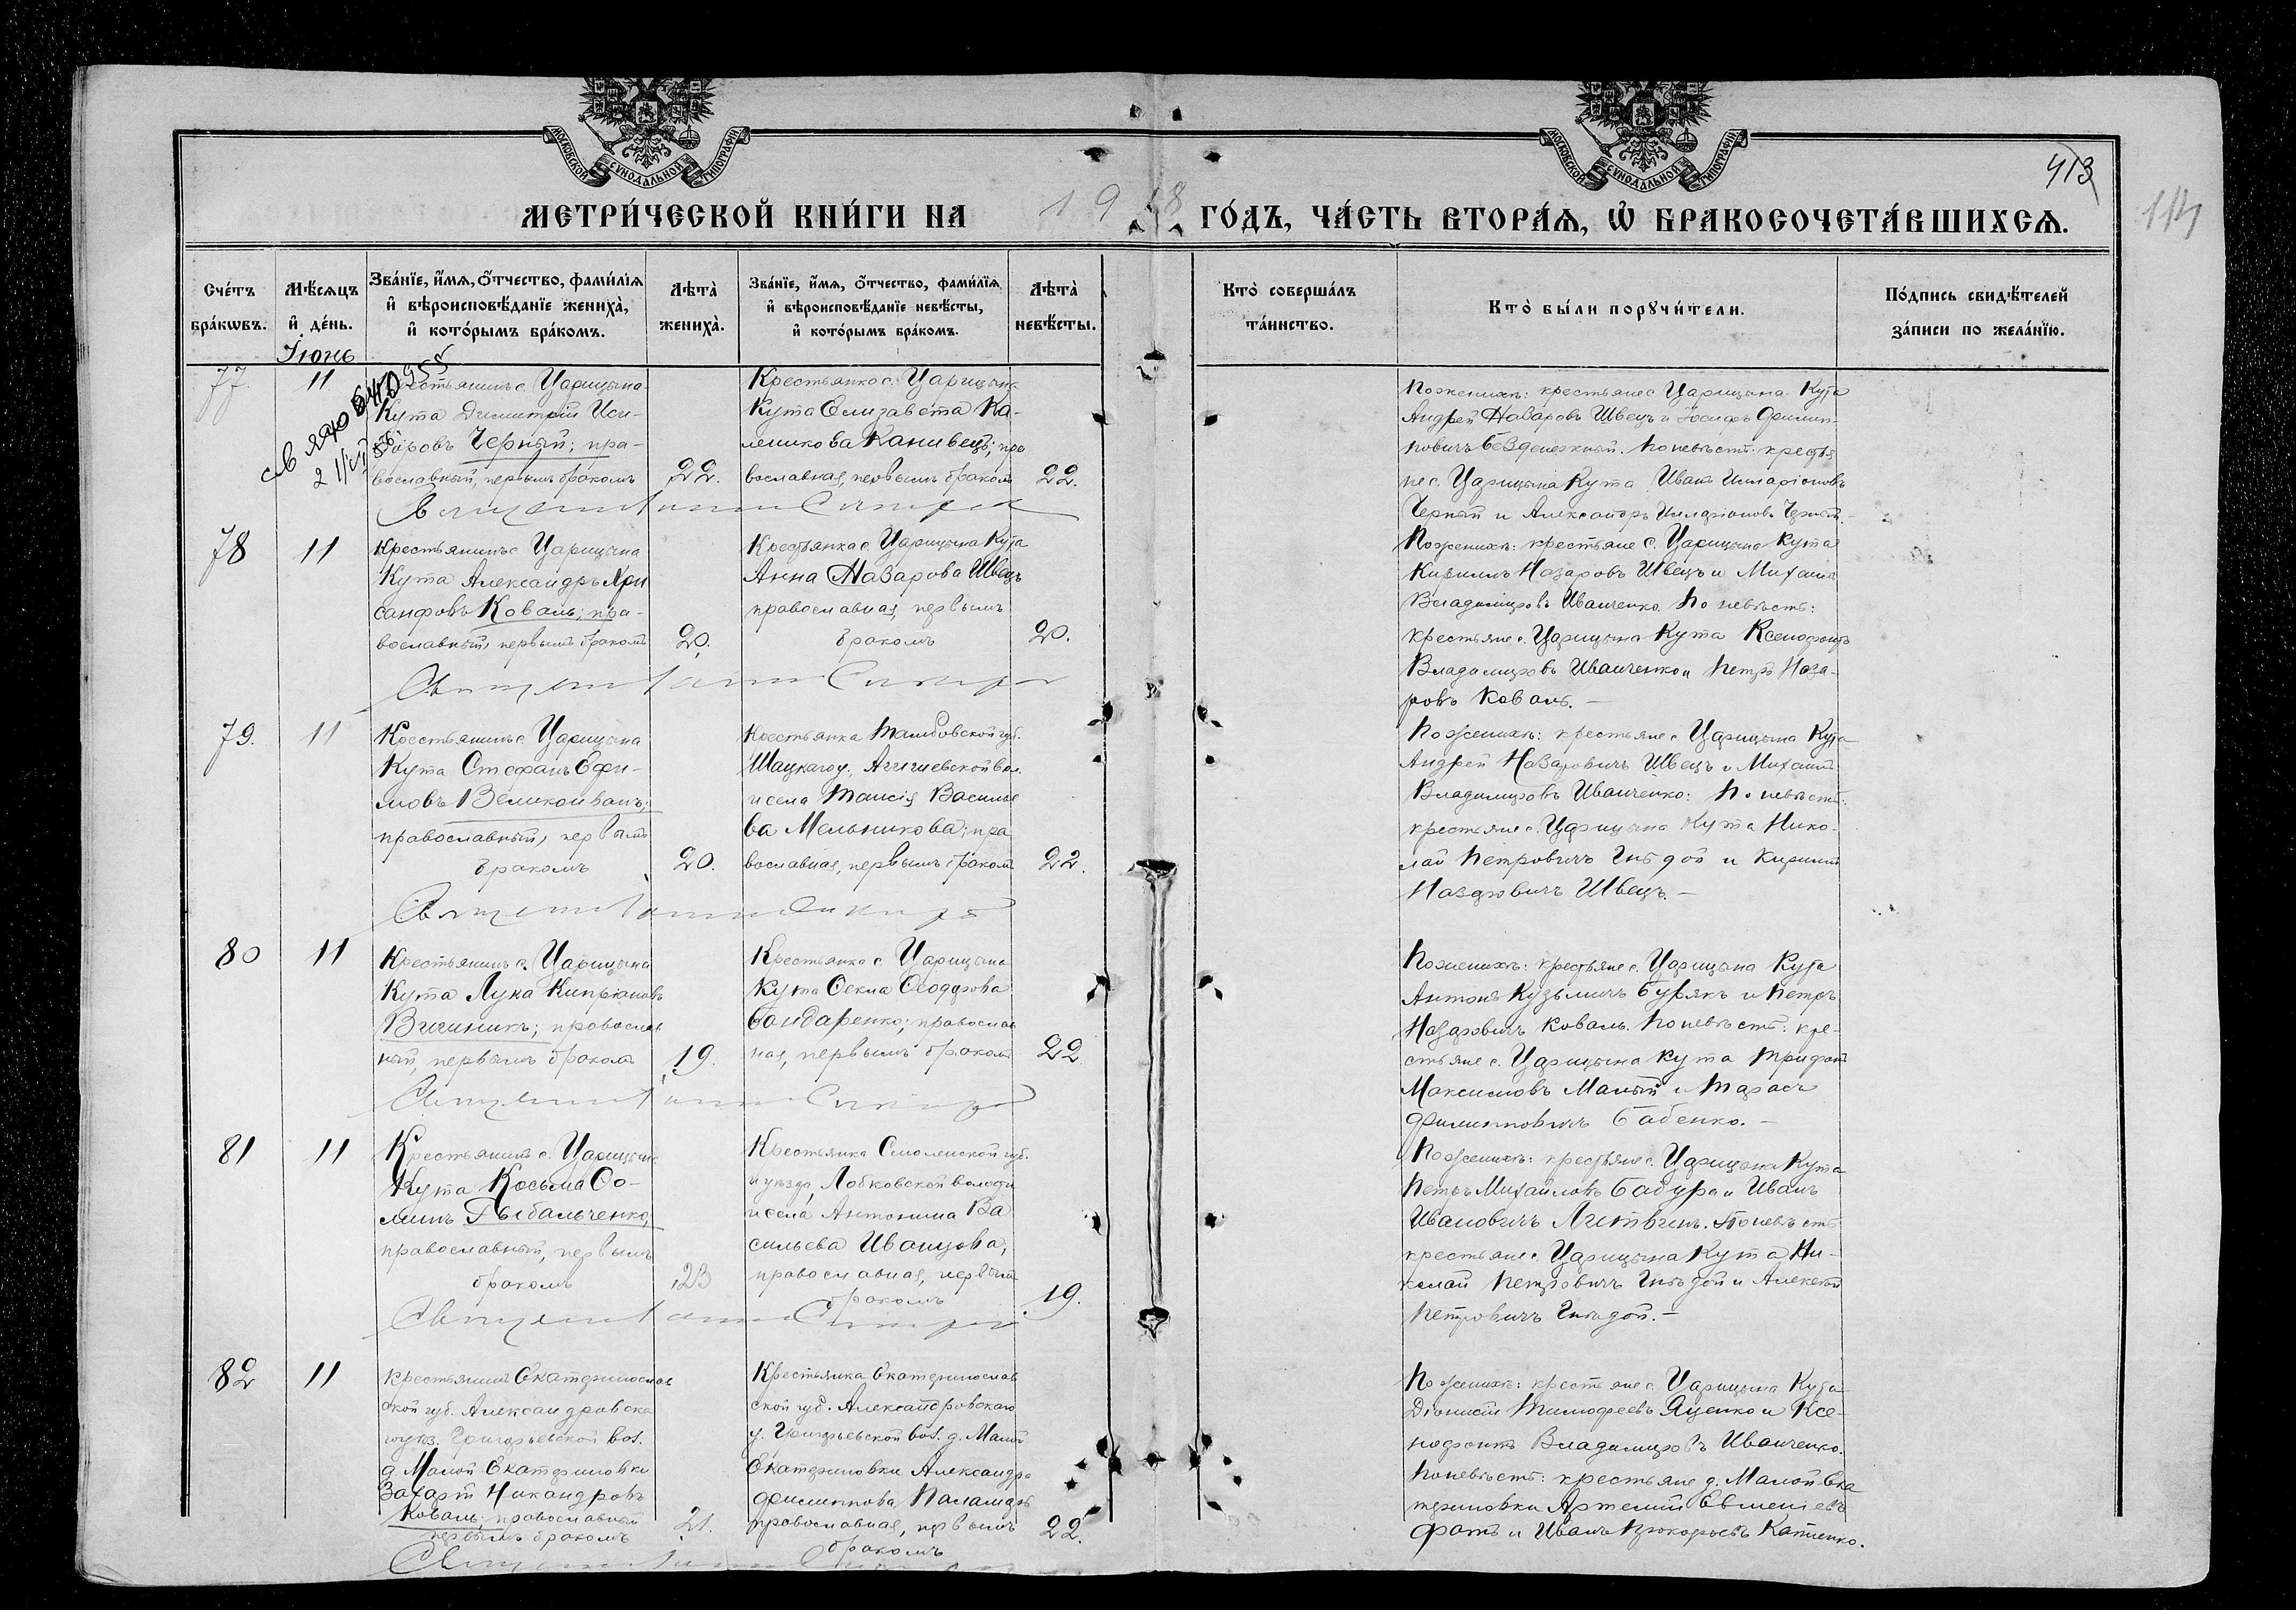 МОСКОВСКОЙ СѴНОДАЛЬНОЙ ТИПОГРАФІИ
МОСКОВСКОЙ СѴНОДАЛЬНОЙ ТИПОГРАФІИ
413
МЕТРИ́ЧЕСКОЙ КНИ́ГИ НА 1918 ГО́ДЪ, ЧА́СТЬ ВТОРА́Ѧ, Ѽ БРАКОСОЧЕТА́ВШИХСѦ.
Сче́тъ бра́кѡвъ.
Мѣ́сѧцъ и҆ де́нь.
Зва́нїе, и҆́мѧ, ѻ҆́тчество, фами́лїѧ и҆ вѣроисповѣ́данїе жениха̀, и҆ кото́рымъ бра́комъ.
Лѣта̀ жениха̀.
Зва́нїе, и҆́мѧ, ѻ҆́тчество, фами́лїѧ и҆ вѣроисповѣ́данїе невѣ́сты, и҆ кото́рымъ бра́комъ.
Лѣта̀ невѣ́сты.
Кто̀ соверша́лъ та́инство.
Кто̀ бы́ли порꙋчи́тели.
По́дпись свидѣ́телей за́писи по жела́нїю.
Іюнь
77.
11
Крестьянинъ с. Царицына
Кута Димитрій Иси-
доровъ Черный; пра-
вославный, первымъ бракомъ
22.
Крестьянка с. Царицына
Кута Елизавета Ка-
ленникова Канивецъ; пра
вославная, первымъ бракомъ
22.
По женихѣ: крестьяне с. Царицына Кута
Андрей Назаровъ Швецъ и Іосифъ Филип-
повичъ Безденежный. По невѣстѣ: крестья
не с. Царицына Кута Иванъ Иларіоновъ
Черный и Александръ Иларіоновъ Черный.
78
11
Крестьянинъ с. Царицына
Кута Александръ Хри
санфовъ Коваль; пра-
вославный, первымъ бракомъ
20.
Крестьянка с. Царицына Кута
Анна Назарова Швецъ
православная, первымъ
бракомъ
20.
По женихѣ: крестьяне с. Царицына Кута
Кириллъ Назаровъ Швецъ и Михаилъ
Владиміровъ Иванченко. По невѣстѣ:
крестьяне с. Царицына Кута Ксенофонтъ
Владиміровъ Иванченко и Петръ Наза-
ровъ Коваль. —
79.
11
Крестьянинъ с. Царицына
Кута Стефанъ Ефи-
мовъ Великоиванъ;
православный, первымъ
бракомъ
20.
Крестьянка Тамбовской губ.
Шацкаго у.
и села Таисія Василье
ва Мельникова; пра
вославная, первымъ бракомъ
22.
По женихѣ: крестьяне с. Царицына Кута
Андрей Назаровичъ Швецъ и Михаилъ
Владиміровъ Иванченко: По невѣстѣ:
крестьяне с. Царицына Кута Нико-
лай Петровичъ Гнѣдой и Кириллъ
Назаровичъ Швецъ. —
80
11
Крестьянинъ с. Царицына
Кута Лука Кипріановъ
православ
ный, первымъ бракомъ
19.
Крестьянка с. Царицына
Кута Ѳекла Ѳеодорова
Бондаренко; православ
ная, первымъ бракомъ
22
По женихѣ: крестьяне с. Царицына Кута
Антоній Кузьмичъ Бурякъ и Петръ
Назаровичъ Коваль. По невѣстѣ: кре-
стьяне с. Царицына Кута Трифонъ
Максимовъ Малый и Тарасъ
Филипповичъ Бабенко. —
81
11
Крестьянинъ с. Царицына
Кута Косьма Ѳо-
минъ Рыбальченко,
православный, первымъ
бракомъ
23
Крестьянка Смоленской губ.
и уѣзда, Лобковской волости
и села Антонина Ва
сильева Иванцова;
православная, первымъ
бракомъ
19.
По женихѣ: крестьяне с. Царицына Кута
Петръ Михайловъ Бабура и Иванъ
Ивановичъ Литвинъ. По невѣстѣ
крестьяне с. Царицына Кута Ни-
колай Петровичъ Гнѣдой и Алексѣй
Петровичъ Гнѣдой. —
82
11
Крестьянинъ Екатеринослав
ской губ. Александровска
го уѣз. Григорьевской вол.
д. Малой Екатериновки
Захарій Никандровъ
Коваль; православный
первымъ бракомъ
21.
Крестьянка Екатеринослав
ской губ. Александровскаго
у. Григорьевской вол. д. Малой
Екатериновки Александра
Филиппова Паламарь
православная, первымъ
бракомъ
22.
По женихѣ: крестьяне с. Царицына Кута
Діонисій Тимофеевъ Яценко и Ксе-
нофонтъ Владиміровъ Иванченко.
По невѣстѣ: крестьяне д. Малой Ека
териновки Артемій Евменіевъ